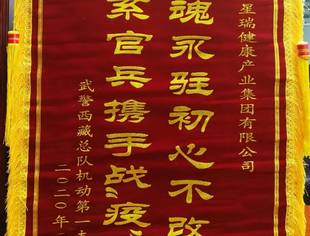 星瑞健康产业集团有限公司
魂永驻初心不改
系官兵携手战疫
武警西藏总队机动第一
二〇二〇年